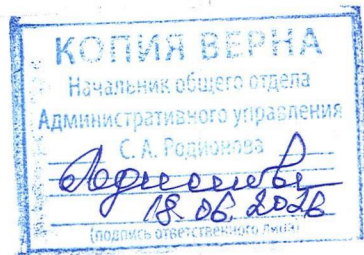 КОПИЯ ВЕРНА
Начальник общего отдела
Административного управления
С. А. Родионова
18.06.2026
(подпись ответственного лица)